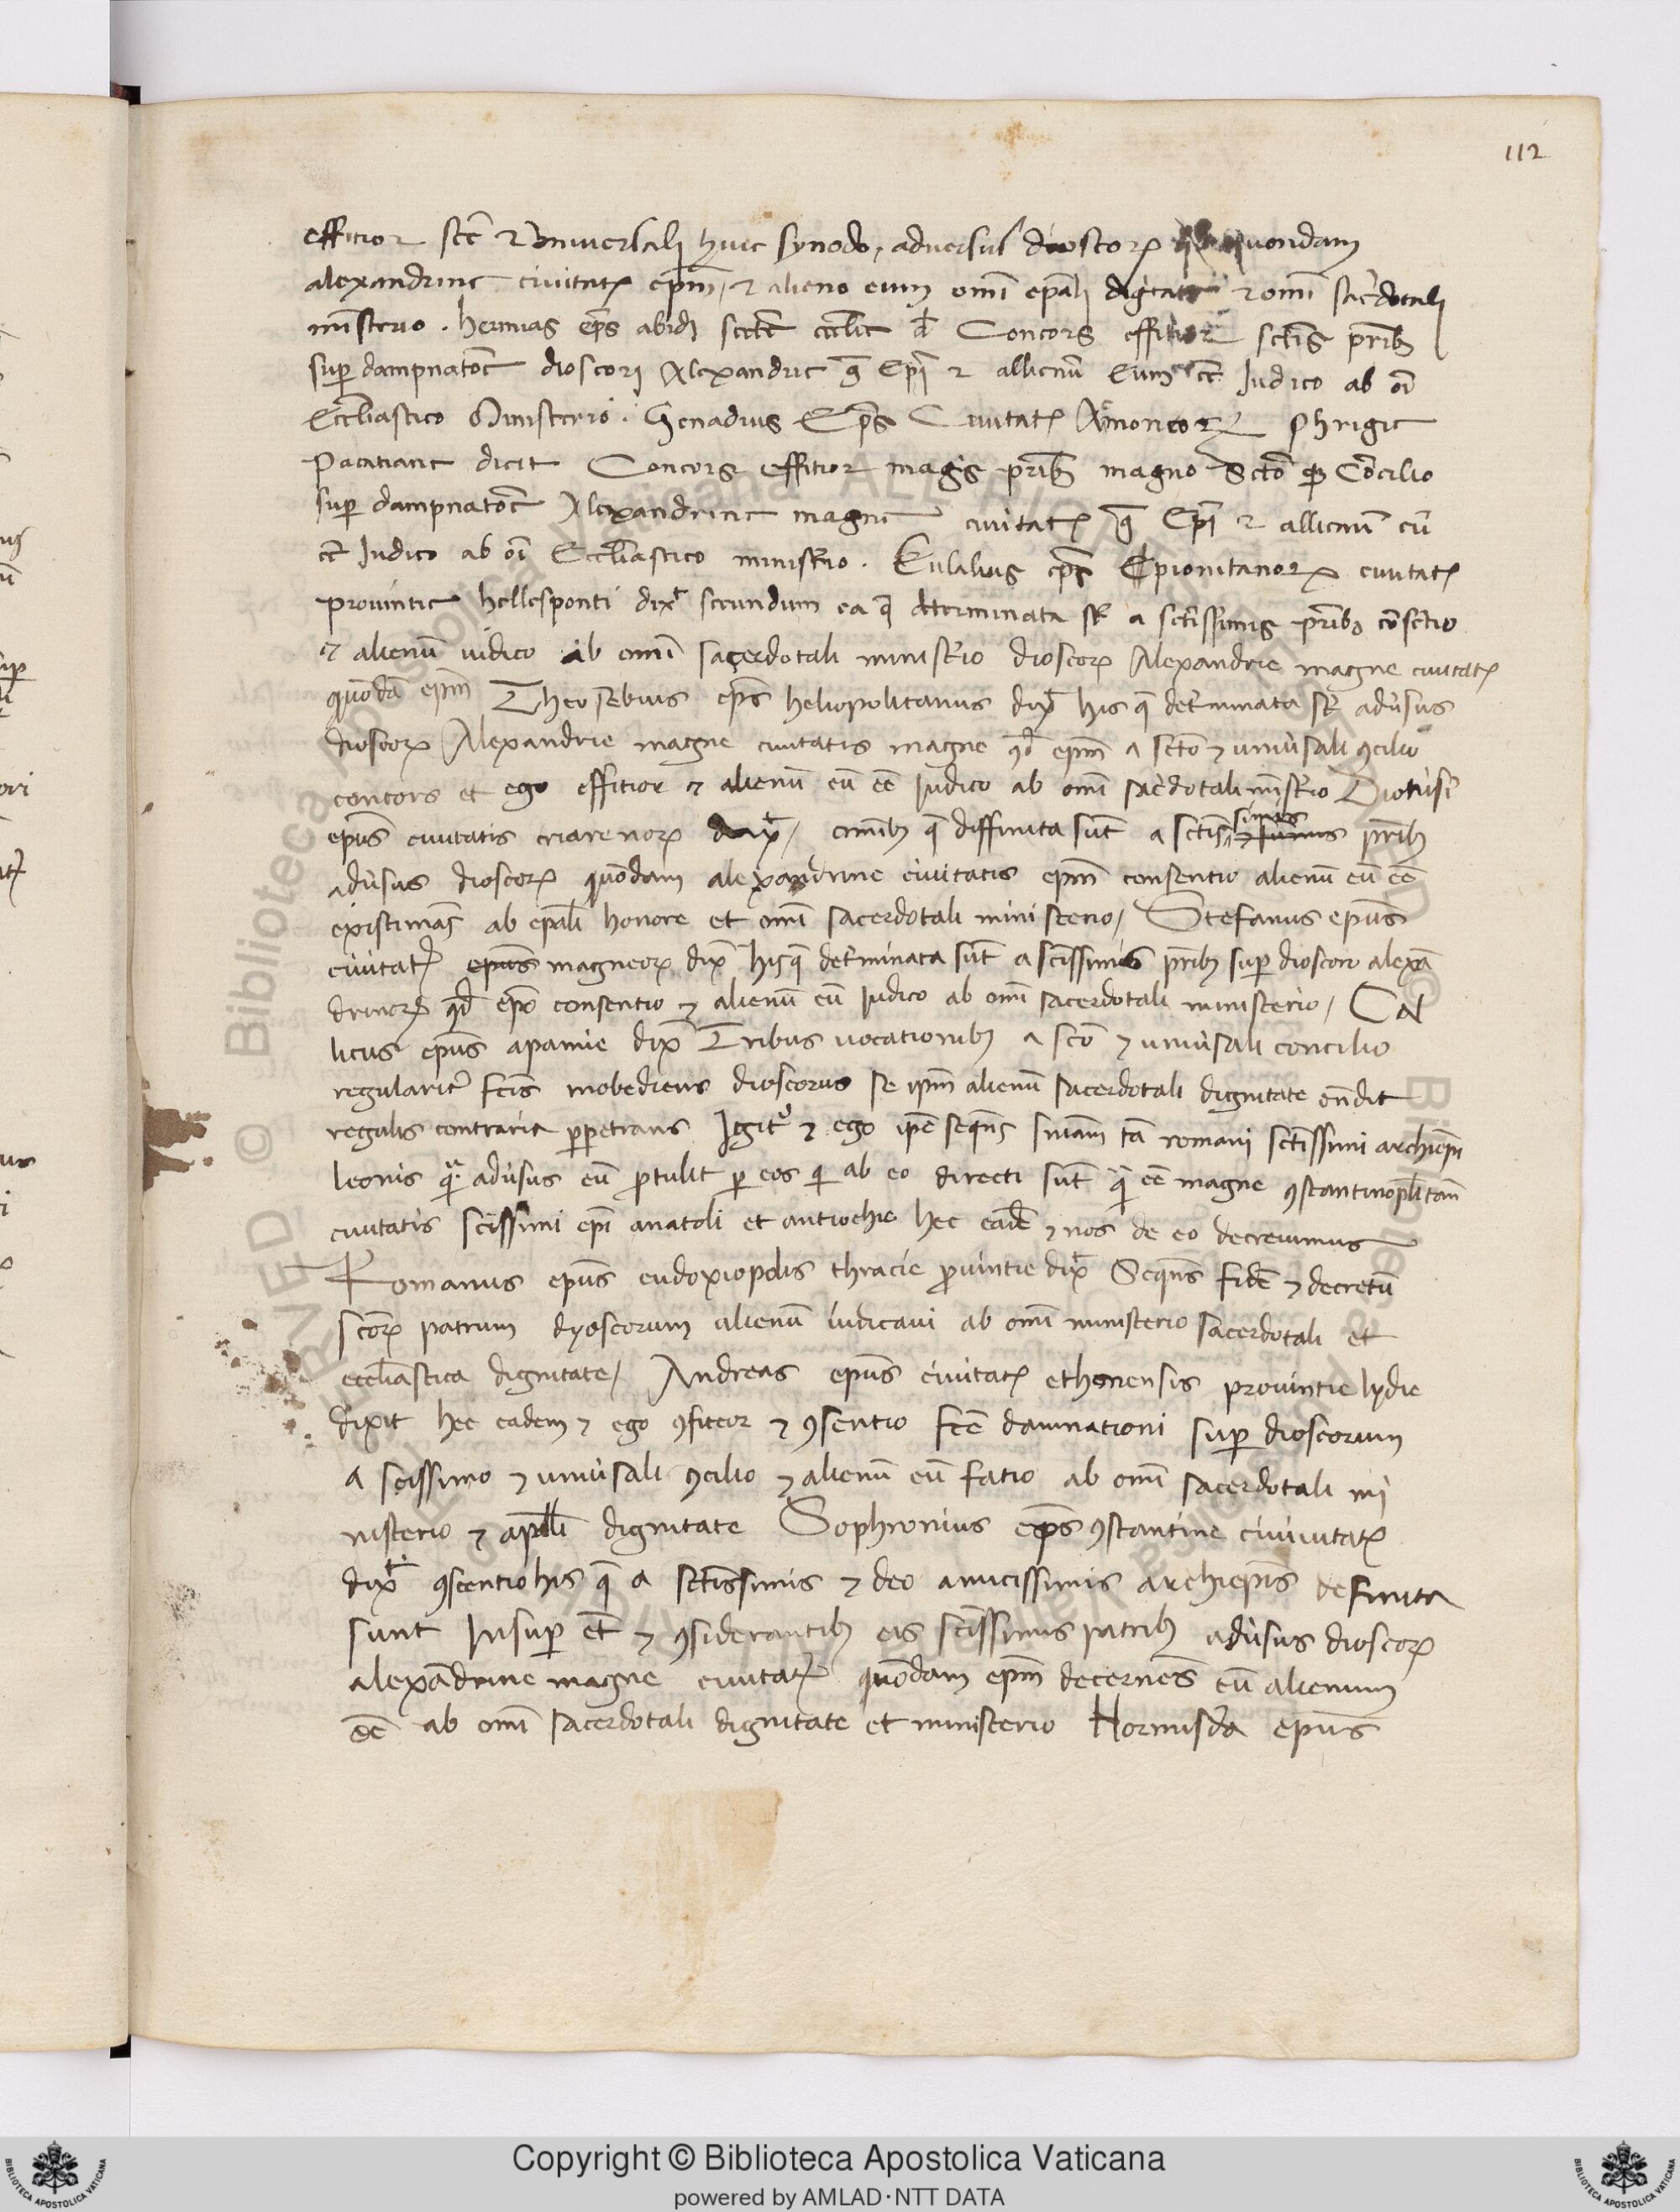 112
effitior scē ⁊ Vniuersali huic synodo, aduersus dioscorꝝ quondam
alexandrine ciuitatꝭ epm̄, ⁊ alieno eum omī epāli digitate ⁊ omī sacͥdotali
mīsterio. hermias eps̄ abidi ecclīe d̄ Concors effitior sctīs prīb;
suꝑ dampnatōe dioscori Alexandrie ꝗ Epī ⁊ allienū Eum ēē Iudico ab oī
Eccliāstico Ministerio. Genadius Eps̄ Ciuitatꝭ Amoneoꝝ Phrigie
Pacatiane dicit Concors effitior magis prīb; magno Sctō qꝫ Cōcilio
suꝑ dampnatōe Alexandrine magne ciuitatꝭ ꝗ Epī ⁊ allienū eū
ēē Iudico ab oī Eccliāstico ministrio. Eulalius eps̄ Epionitanoꝝ ciuitatꝭ
prouintie hellesponti dixͭ secundum ea q̄ determinata st̄ a sctissimis prīb; cōsētio
⁊ alienū iudico ab omī sacerdotali ministrio dioscoꝝ Alexandrie magne ciuitatꝭ
quōdā epm̄ Theosebius eps̄ heliopolitanus dix̄ his q̄ det'minata st̄ adu'sus
dioscoꝝ Alexandrie magne ciuitatis magne qd̄ epm̄ a sctō ⁊ uniu'sali ꝯcilio
concors et ego effitior ⁊ alienū eū ēē Iudico ab omī sac'dotali mīst'io Diotusi
epus̄ ciuitatis criarenoꝝ dixͭ, omīb; q̄ diffinita sūt a sctis simis prīb;
adu'sus dioscoꝝ quōdam alexandrine ciuitatis epm̄ consentio alienū eū ēē
existimās ab epāli honore et omī sacerdotali ministerio, Stefanus epus̄
ciuitatꝭ epus̄ magneoꝝ dix̄ his q̄ det'minata sūt a sctissimis prīb; suꝑ dioscoro alexā
drinoꝝ qd̄ epō consentio ⁊ alienū eū Iudico ab omī sacerdotali ministerio, Cal
licus epus̄ apamie dix̄ Tribus uocationib; a sctō ⁊ uniu'sali concilio
regularit' fctīs inobediens dioscorus se ipm̄ alienū sacerdotali dignitate ōndit
regulis contraria ꝑpetrans Igitͬ ⁊ ego ipē seqn̄s sniām tā romani sctissimi archiepī
leonis q̄ adu'sus eū ꝓtulit ꝑ eos qi ab eo directi sūt q̄ ēē magne ꝯstantinoplitan̄
ciuitatis sctissimi epī anatoli et antiochie hec eadē ⁊ nos de eo decreuimus
Romanus epus̄ eudoxiopolis thracie ꝓuintie dix̄ Seqn̄s fidē ⁊ decretū
sctoꝝ patrum dyoscorum alienū iudicaui ab omī ministerio sacerdotali et
eccliāstica dignitate, Andreas epus̄ ciuitatꝭ ethenensis prouintie lydie
dixit hec eadem ⁊ ego ꝯfiteor ⁊ ꝯsentio fctē damnationi suꝑ dioscorum
a sctissimo ⁊ uniu'sali ꝯcilio ⁊ alienū eū fatio ab omī sacerdotali mi
nisterio ⁊ aplī dignitate Sophronius eps̄ ꝯstantine ciuiuitatꝭ
dixͭ ꝯscentio his q̄ a sctissimis ⁊ deo amicissimis archiepīs definita
sunt Insuꝑ et̄ ⁊ ꝯsiderantib; eis sctissimis patrib; adu'sus dioscoꝝ
alexādrine magne ciuitatꝭ quōdam epm̄ decernēs eū alienum
ēē ab omī sacerdotali dignitate et ministerio Hormisda epus̄
Copyright © Biblioteca Apostolica Vaticana
powered by AMLAD·NTT DATA